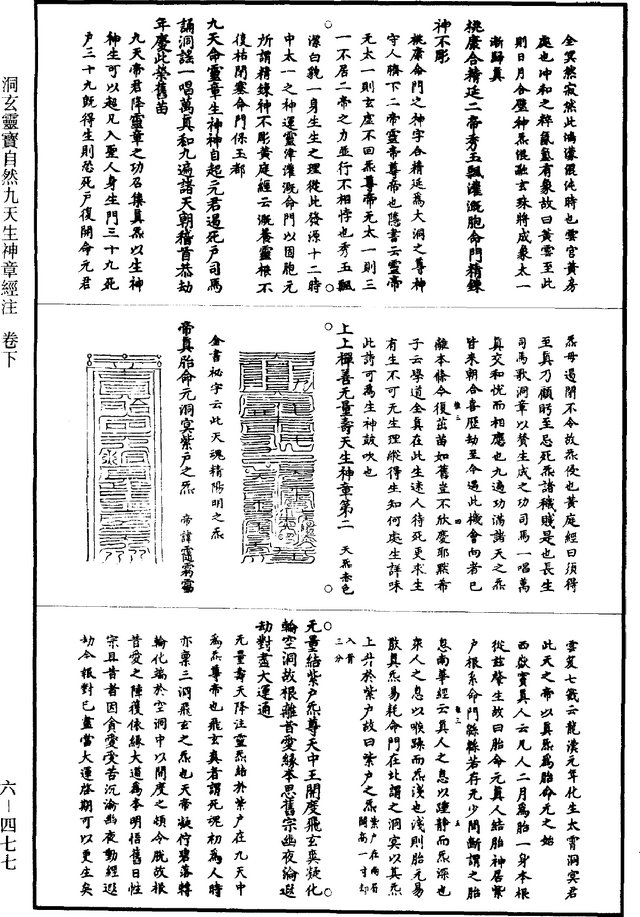 全冥然寂然此鴻濛混沌時也雲宮黃房
處也沖和之粹氤氳有象故曰黃雲至此
則日月合璧神炁混融玄珠將成象太一
漸歸真
桃康合精延二帝秀玉飄灌溉胞命門精鍊
神不彫
桃康命門之神字合精延為大洞之尊神
守人臍下二帝靈帝尊帝也隱書云靈帝
无太一則玄虛不回炁尊帝无太一則三
一不居二帝之力並行不相悖也秀玉飄
潔白貌一身生生之理從此發源十二時
中太一之神運靈津灌溉命門以固胞元
所謂精鍊神不彫黃庭經云溉養靈根不
復枯閉塞命門保玉都
九天命靈章生神神自起元君遏死戶司馬
誦洞謠一唱萬真和九遍諸天朝稽首恭劫
年慶此榮舊苗
九天帝君降靈章之功召集真炁以生神
神生可以超凡入聖人身生門三十九死
戶三十九既得生則恐死戶復開命元君
炁母遏閉不令故炁侵也黃庭經曰須得
至真乃顧眄至忌死炁諸穢賤是也長生
司馬歌洞章以贊生成之功司馬一唱萬
真交和忱而相應也九遍功滿諸天之炁
皆來朝合喜歷劫至今遇此機會向者已
離本條今復茁苗如舊豈不欣慶耶默希
子云學道全真在此生迷人待死更求生
有生不可无生理縱得生知何處生詳味
此詩可為生神鼓吹也
上上禪善无量壽天生神章第二 天炁赤色
金書祕字云此天魂精陽明之炁
帝真胎命元洞冥紫戶之炁 帝諱
雲笈七籤云龍漢元年化生太霄洞冥君
此天之帝以真炁為胎命元之始
西嶽竇真人云凡人二月為胎一身本根
從茲肇生故曰胎命元真人結胎神居紫
戶根系命門緜緜若存无少間斷謂之胎
息南華經云真人之息以踵靜而炁深也
眾人之息以喉躁而炁淺也淺則胎元易
散真炁易耗命門在北謂之洞冥以真炁
上升於紫戶故曰紫戶之炁 紫戶在兩眉間高一寸却入骨三分
无量結紫戶炁尊天中王開度飛玄爽凝化
輪空洞故根離昔愛緣本思舊宗幽夜淪遐
劫對盡大運通
无量壽天降注靈炁結於紫戶在九天中
為炁尊帝也飛玄爽者謂死魂初為人時
亦稟三洞飛玄之炁也天帝凝佇碧落轉
輪化端於空洞中以開度之頃令脫故根
昔愛之障復依緣大道為本明悟舊日性
宗且昔者因貪愛受苦沉淪幽夜動經遐
劫今根對已盡當大運啓期可以更生矣
洞玄靈寶自然九天生神章經注 卷下
六－四七七